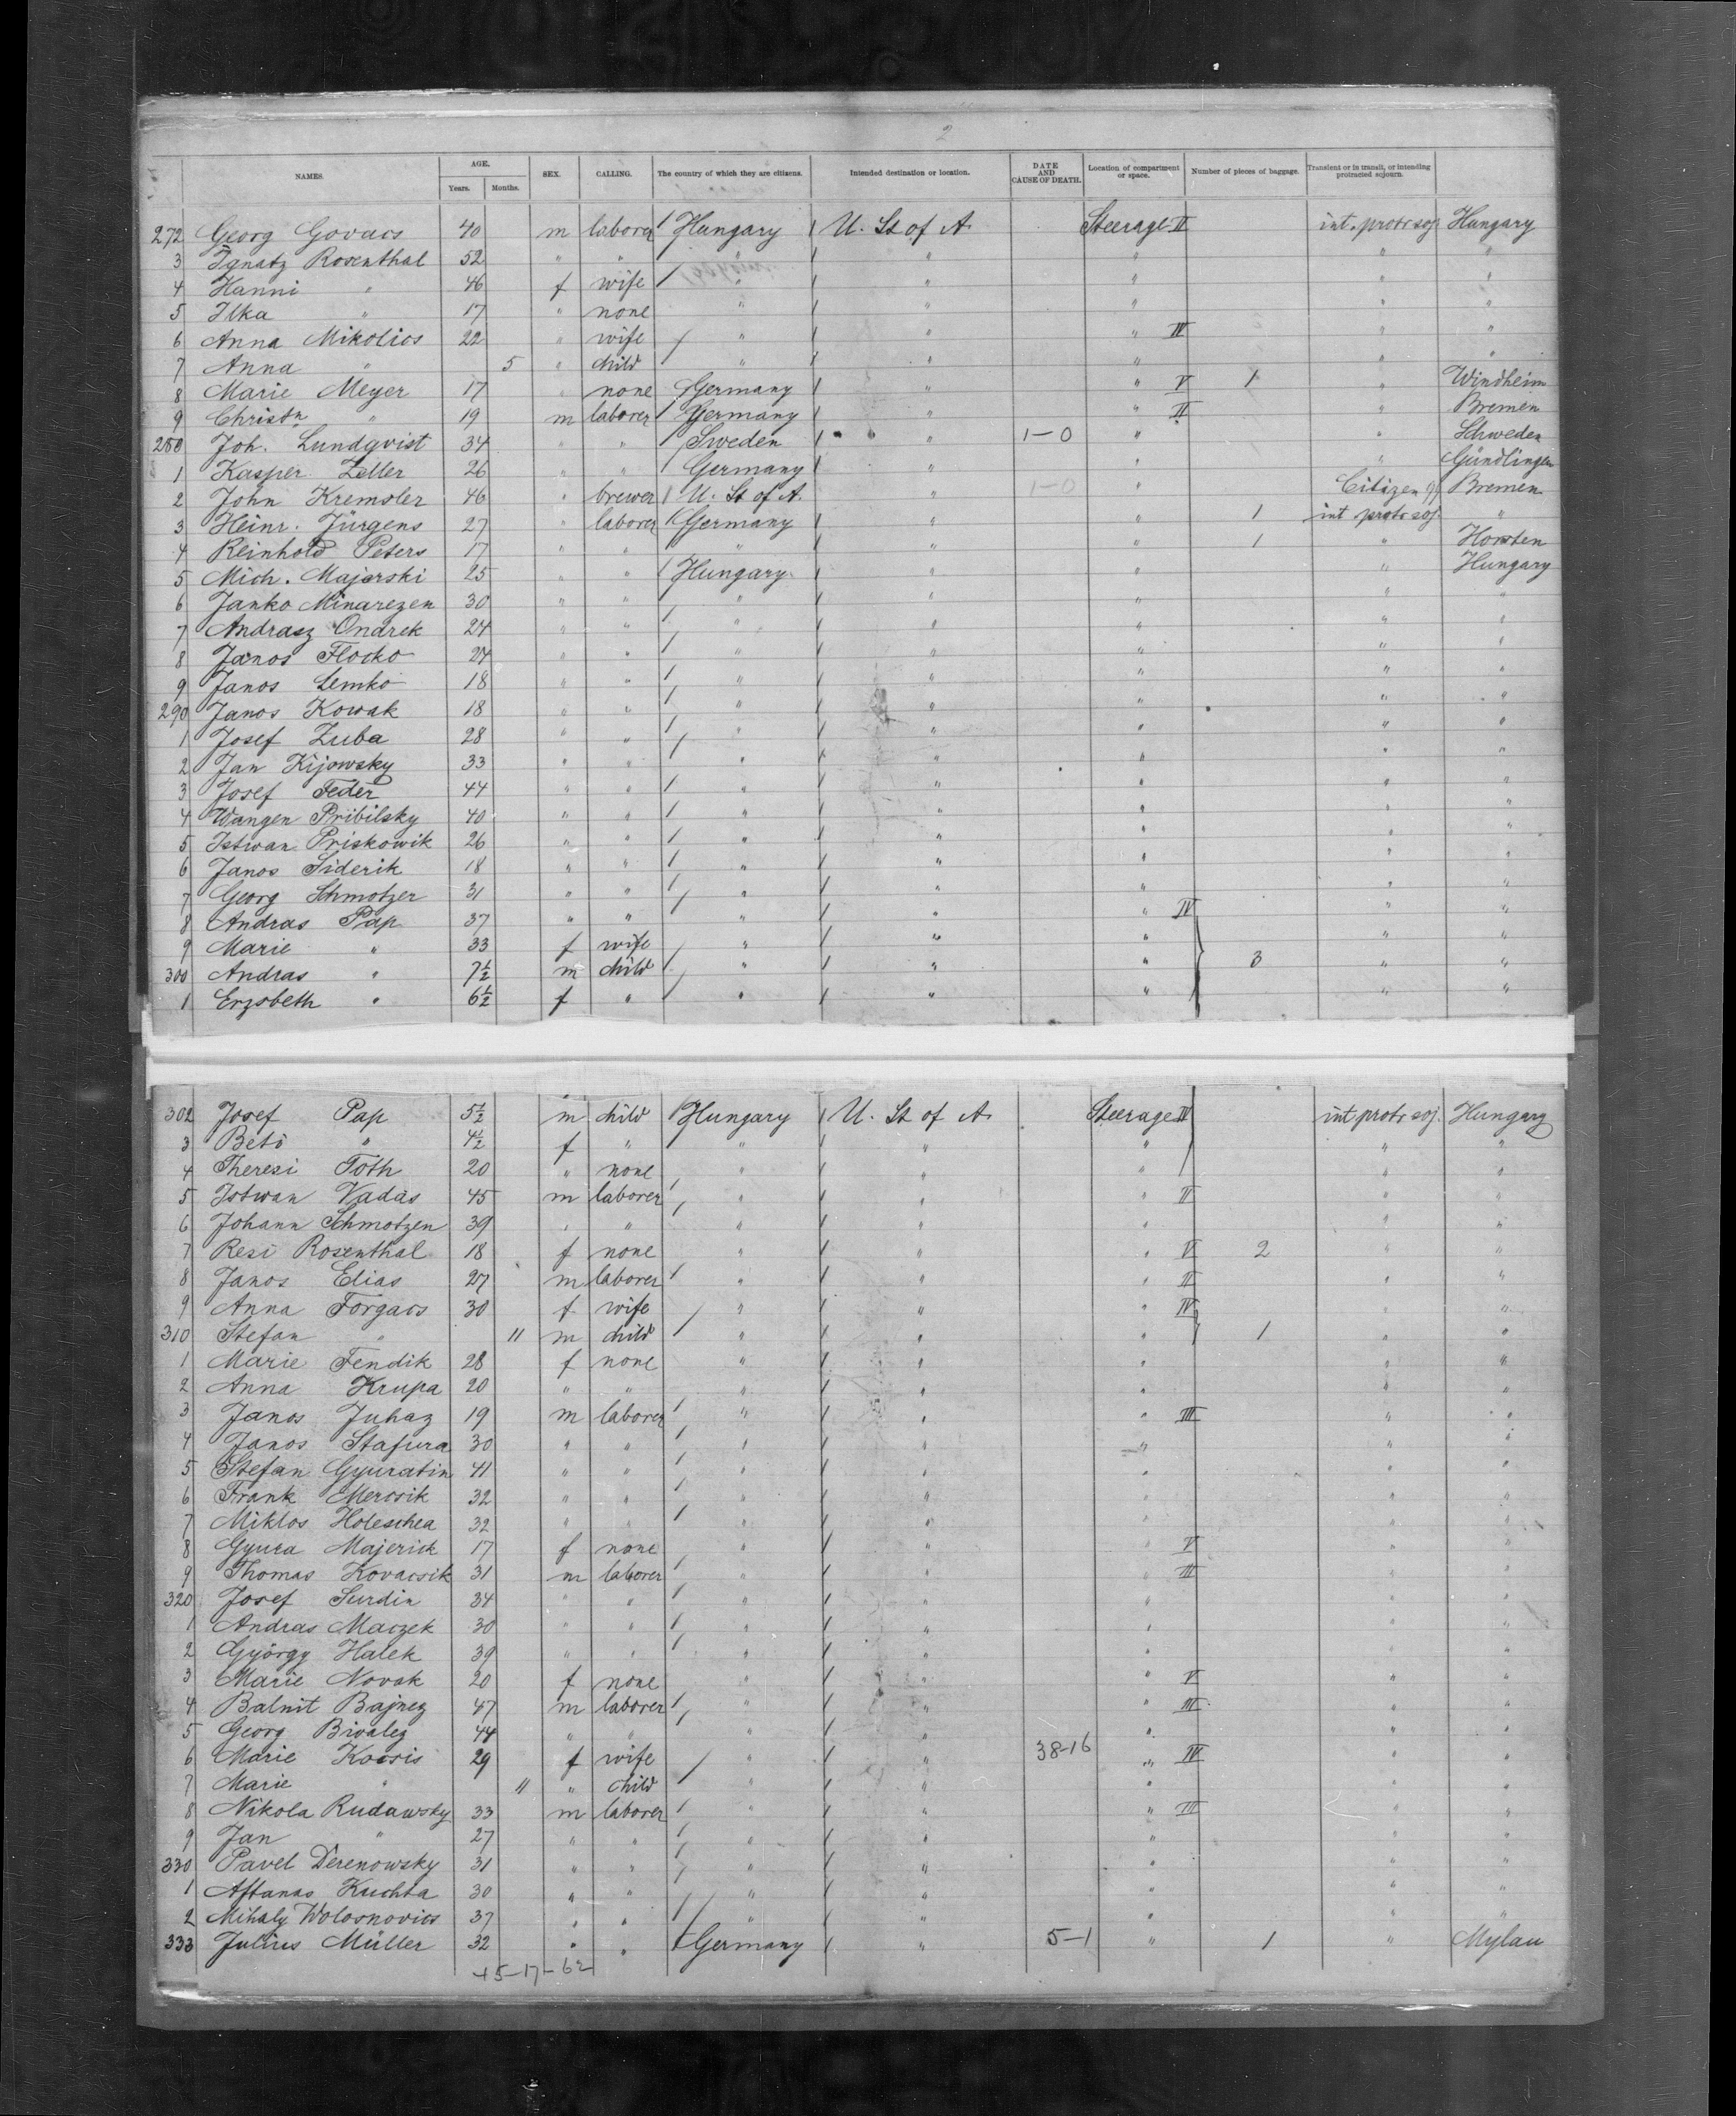 2
NAMES. AGE. Years. Months. SEX. CALLING. The country of which they are citizens. Intended destination or location. DATE AND CAUSE OF DEATH. Location of compartment or space. Number of pieces of baggage. Transient or in transit, or intending protracted sojourn.
272 Georg Govacs 40 m laborer Hungary U. St of A. Steerage II int. protr soj Hungary
3 Ignatz Rosenthal 52 " " " " " " "
4 Hanni " 46 f wife " " " " "
5 Ilka " 17 " none " " " " "
6 Anna Mikolics 22 " wife " " " IV " "
7 Anna " 5 " child " " " " "
8 Marie Meyer 17 " none Germany " " V 1 " Windheim
9 Christn " 19 m laborer Germany " " II " Bremen
280 Joh. Lundqvist 34 " " Sweden " 1-0 " " Schweden
1 Kasper Zeller 26 " " Germany " " " Gündlingen
2 John Kremsler 46 " brewer U. St of A. " 1-0 " Citizen Bremen
3 Heinr. Jürgens 27 " laborer Germany " " 1 int protr soj. "
4 Reinhold Peters 17 " " " " " 1 " Horsten
5 Mich. Majerski 25 " " Hungary " " " Hungary
6 Janko Minarezen 30 " " " " " " "
7 Andrasz Ondrek 24 " " " " " " "
8 Janos Flocko 24 " " " " " " "
9 Janos Lemko 18 " " " " " " "
290 Janos Kowak 18 " " " " " " "
1 Josef Zuba 28 " " " " " " "
2 Jan Kijowsky 33 " " " " " " "
3 Josef Feder 44 " " " " " " "
4 Wangen Pribilsky 40 " " " " " " "
5 Istwan Priskowik 26 " " " " " " "
6 Janos Siderik 18 " " " " " " "
7 Georg Schmotzer 31 " " " " " " "
8 Andras Pap 37 " " " " " IV " "
9 Marie " 33 f wife " " " " "
300 Andras " 7½ m child " " " 3 " "
1 Erzsbeth " 6½ f " " " " " "
302 Josef Pap 5½ m child Hungary U. St of A. Steerage IV int protr soj. Hungary
3 Beti " 4½ f " " " " " "
4 Theresi Toth 20 " none " " " " "
5 Istwan Vadas 45 m laborer " " II " "
6 Johann Schmotzen 39 " " " " " " "
7 Resi Rosenthal 18 f none " " " V 2 " "
8 Janos Elias 27 m laborer " " " II " "
9 Anna Forgacs 30 f wife " " " IV " "
310 Stefan " 11 m child " " " 1 " "
1 Marie Fendik 28 f none " " " " "
2 Anna Krupa 20 " " " " " " "
3 Janos Juhaz 19 m laborer " " " III " "
4 Janos Stafura 30 " " " " " " "
5 Stefan Gyuratin 41 " " " " " " "
6 Frank Merosik 32 " " " " " " "
7 Miklos Holeschea 32 " " " " " " "
8 Gyura Majerick 17 f none " " " V " "
9 Thomas Kovacsik 31 m laborer " " " III " "
320 Josef Surdin 34 " " " " " " "
1 Andras Maczek 30 " " " " " " "
2 György Halek 39 " " " " " " "
3 Marie Novak 20 f none " " " V " "
4 Balnit Bajnez 47 m laborer " " " III " "
5 Georg Bivalez 44 " " " " " " "
6 Marie Kocsis 29 f wife " " 38-16 " IV " "
7 Marie " 11 " child " " " " "
8 Nikola Rudawsky 33 m laborer " " " III " "
9 Jan " 27 " " " " " " "
330 Pavel Derenowsky 31 " " " " " " "
1 Aftanas Kuchta 30 " " " " " " "
2 Mihaly Wolosnovics 37 " " " " " " "
333 Julius Müller 32 " " Germany " 5-1 " 1 " Mylau
45-17-62